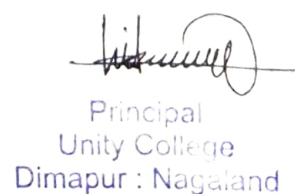 Principal
Unity College
Dimapur : Nagaland